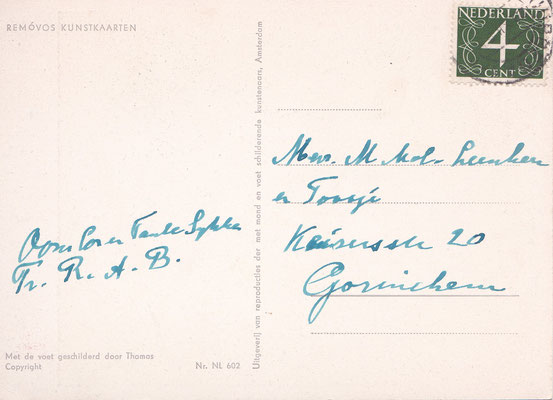 REMÓVOS KUNSTKAARTEN
NEDERLAND
4
CENT
Uitgeverij van reproducties der met mond en voet schilderende kunstenaars, Amsterdam
Mevr. M Mol-
en Toosje
Keizersstr 20
Gorinchem
Oom Co en Tante
Fr. R. A. B.
Met de voet geschilderd door Thomas
Copyright
Nr. NL 602